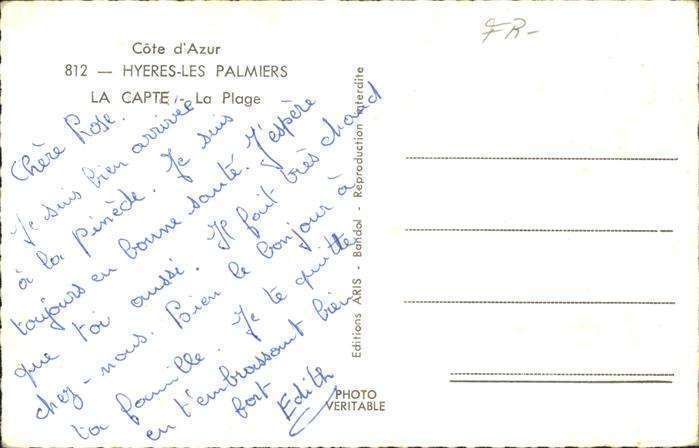 Côte d'Azur
812 — HYERES-LES PALMIERS
LA CAPTE - La Plage
FR-
Chère Rose.
Je suis bien arrivée
à la pinède. Je suis
toujours en bonne santé. J'espère
que toi aussi. Il fait très chaud
chez-nous. Bien le bonjour à
ta famille. Je te quitte
en t'embrassant bien
fort Edith
Editions ARIS - Bandol - Reproduction interdite
PHOTO
VERITABLE